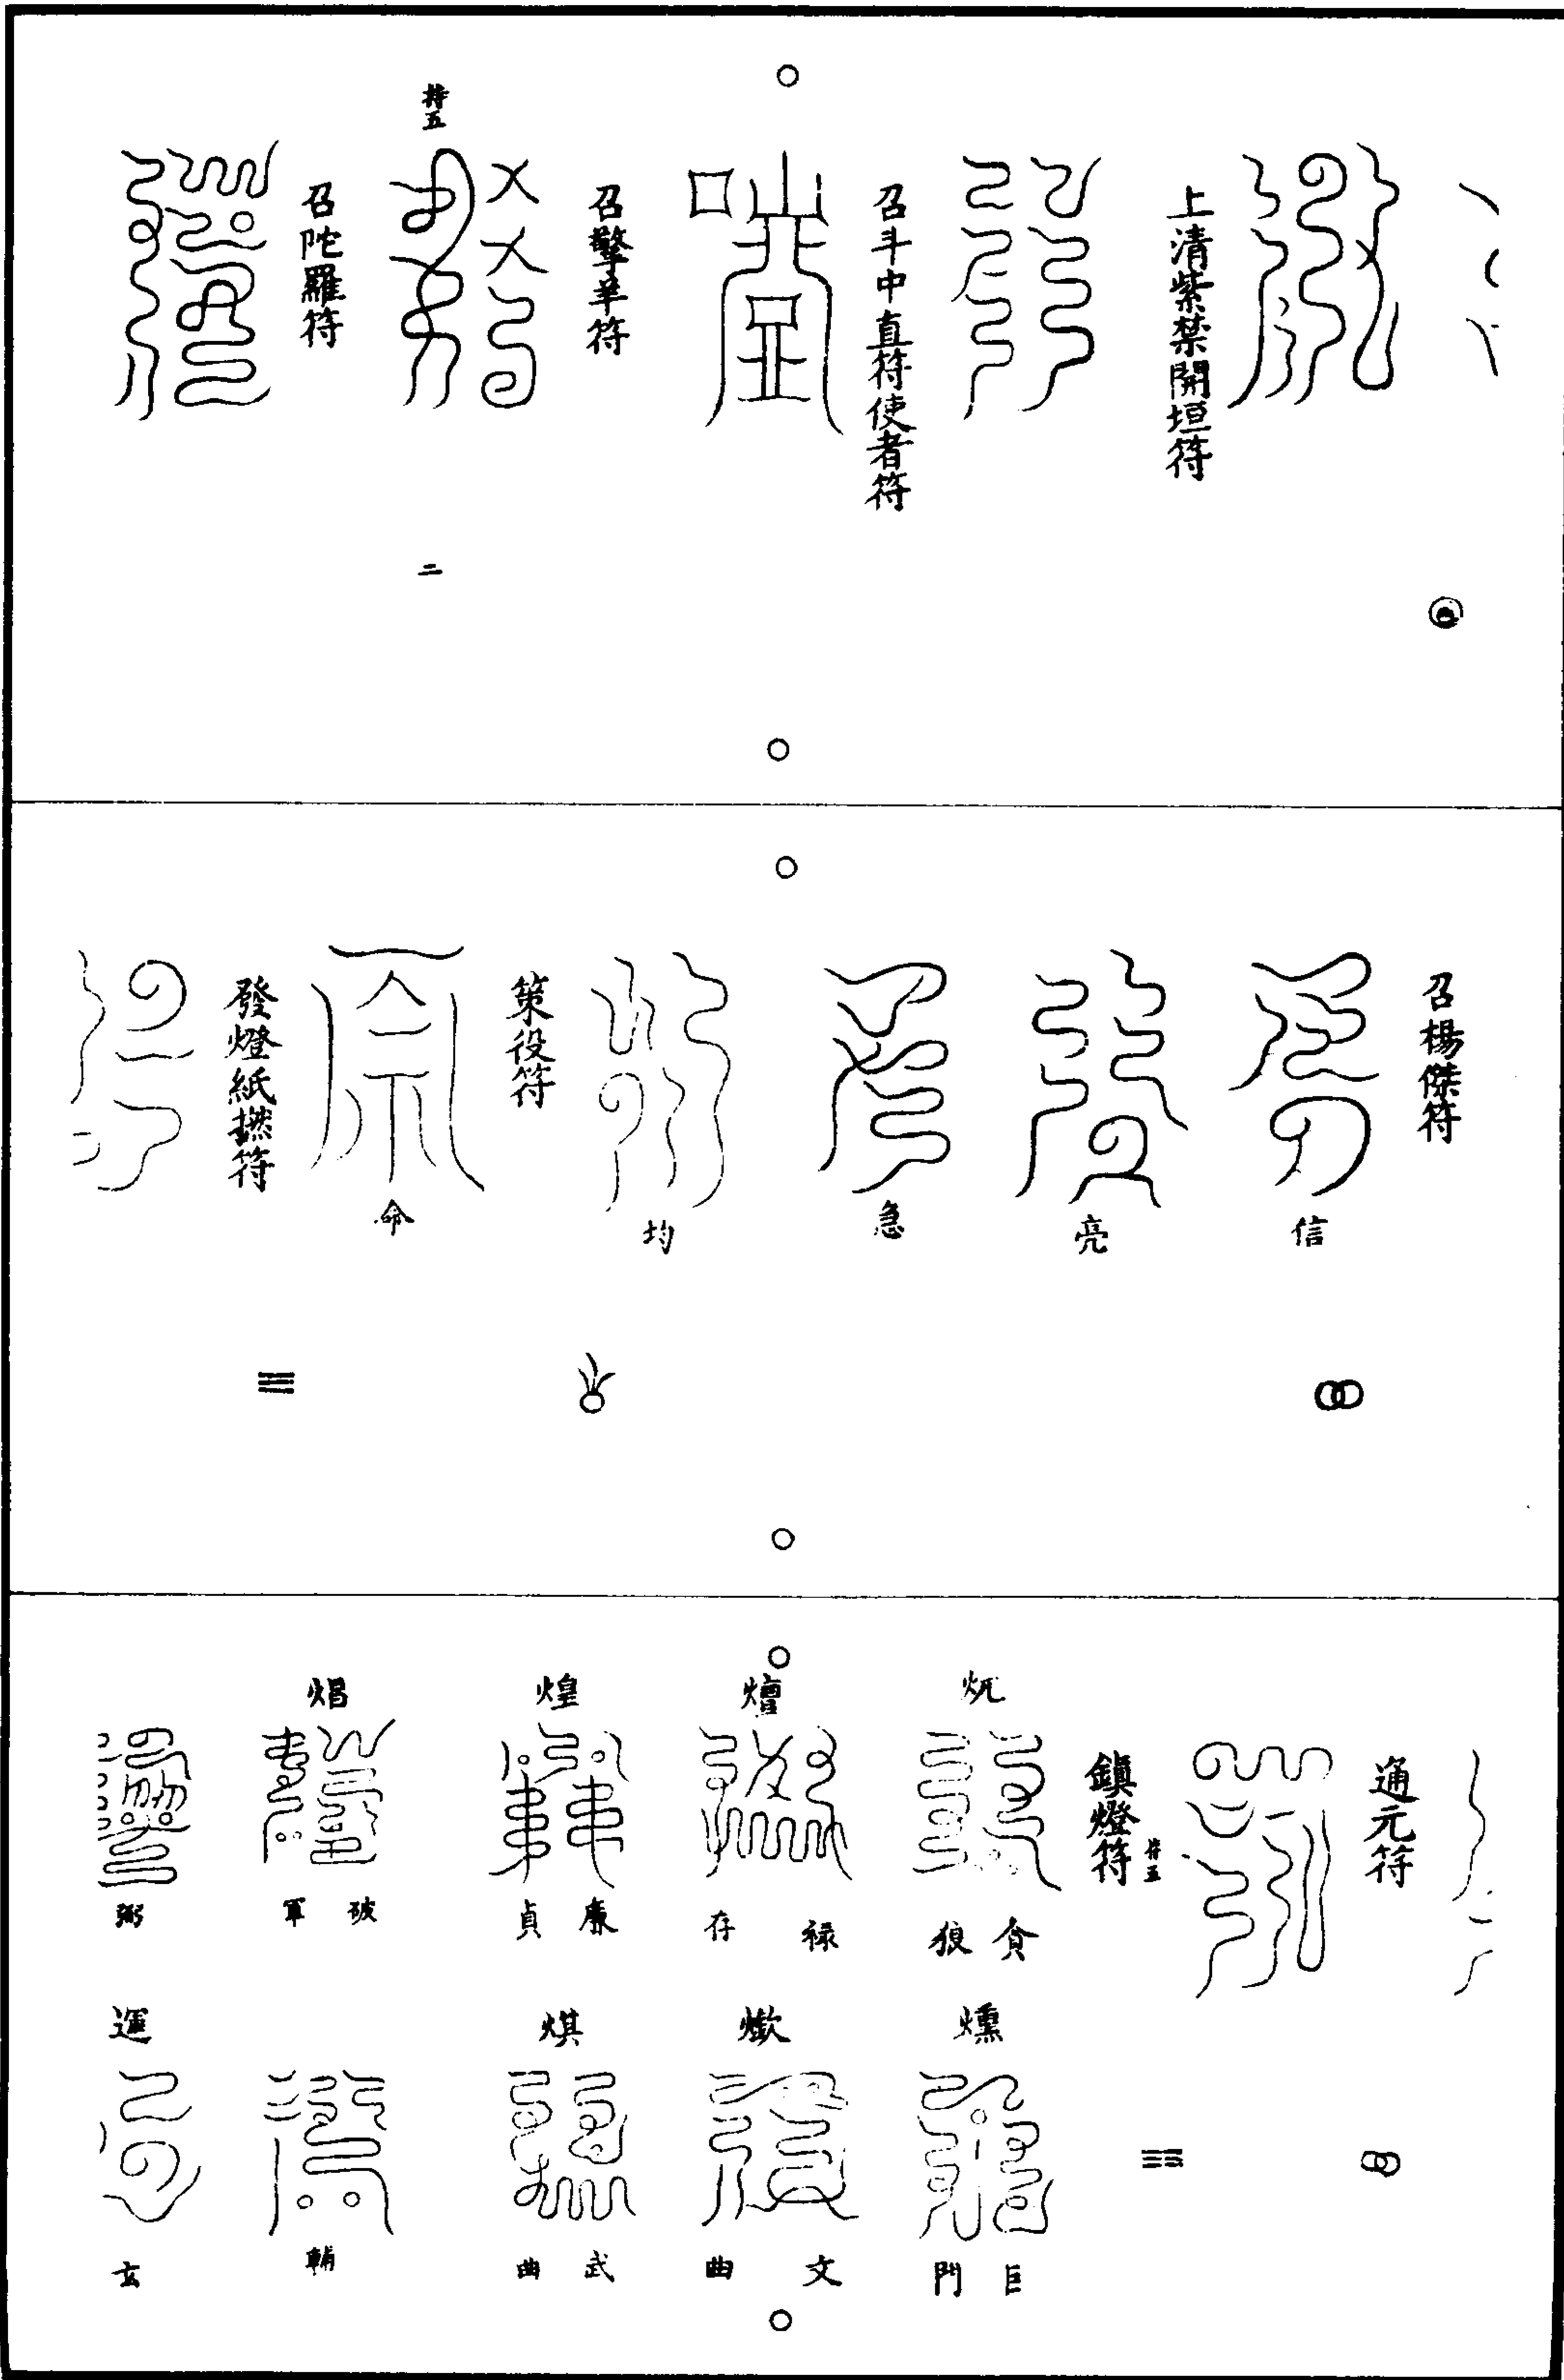 上清紫禁開垣符
召斗中直符使者符
召擎羊符
持五
二
召陀羅符
召楊傑符
信
亮
急
均
策役符
命
發燈紙撚符
通元符
鎮燈符
符五
炁
貪狼
燻
巨門
禄存
文曲
煌
廉貞
武曲
焻
破軍
輔
弼
運
玄